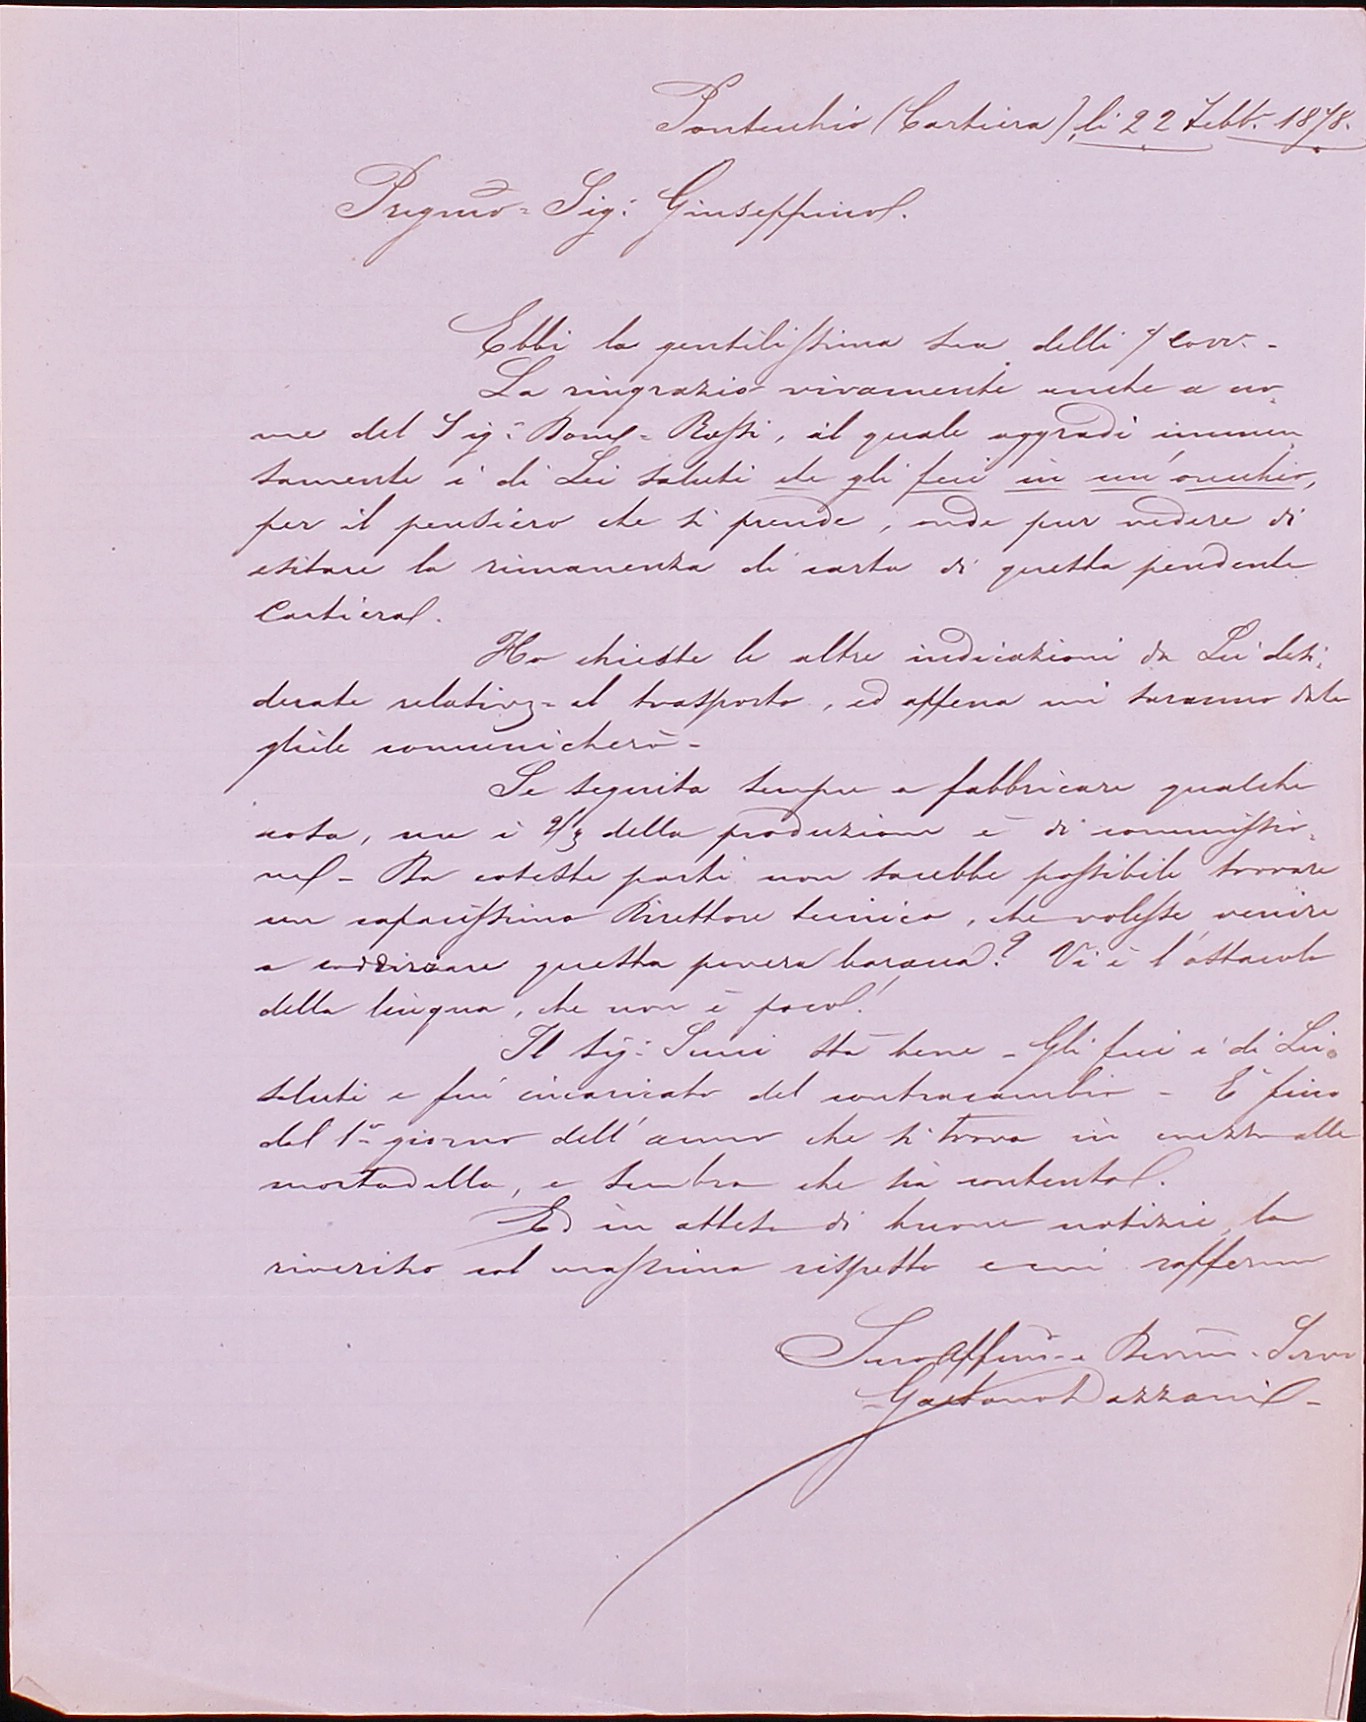 Pontecchio (Cartiera) li 22 Febb.º 1878.
Pregmo = Sig.r Giuseppino.
Ebbi la gentilissima sua delli 7 corr. -
La ringrazio vivamente anche a no=
me del Sig.r Dom.o = Rossi, il quale aggradì immen=
samente i di Lei saluti che gli feci in un'orecchio,
per il pensiero che si prende, onde pur vedere di
esitare la rimanenza di carta di questa pendente
Cartiera.
Ho chieste le altre indicazioni da Lei desi=
derate relativ.e = al trasporto, ed appena mi saranno date
gliele comunicherò -
Si seguita sempre a fabbricare qualche
cosa, ma i 2/3 della produzione è di commissio=
ne - Da coteste parti non sarebbe possibile trovare
un capacissimo Direttore tecnico, che volesse venire
a inddirizzare questa povera baracca? Vi è l'ostacolo
della lingua, che non è poco!
Il Sig.r Suni stà bene - Gli feci i di Lei
saluti e fui incaricato del contracambio - E' fino
dal 1º giorno dell'anno che si trova in mezzo alle
mortadella, e sembra che sia contento.
Ed in attesa di buone notizie, la
riverisco col massimo rispetto e mi raffermo
Suo Affmo = e Devmo = Servo
Gaetano Dazzani -